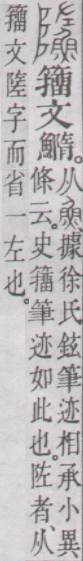 籒文鰖。从據徐氏鉉筆迹相承小異
條云。史籒筆迹如此也。者、从
籒文字而省一左也。